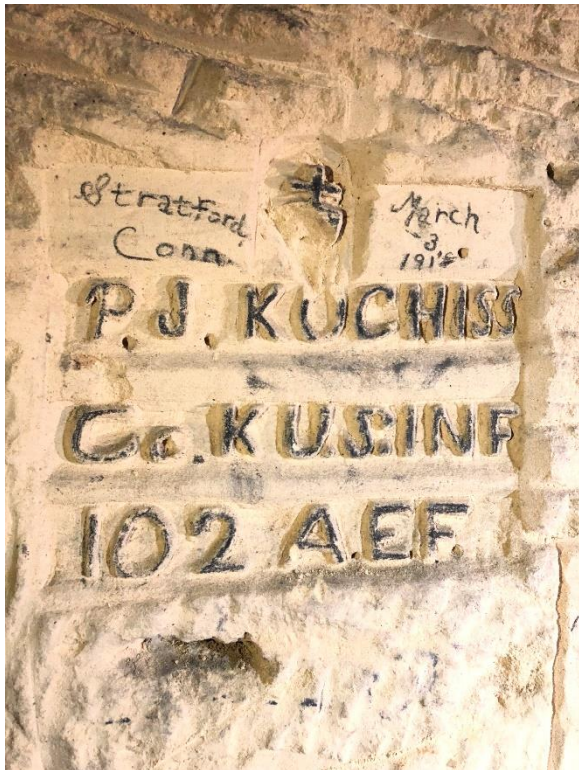 Stratford,
Conn
March
3
1918
P.J. KUCHISS
Co. K U.S. INF
102 A.E.F.